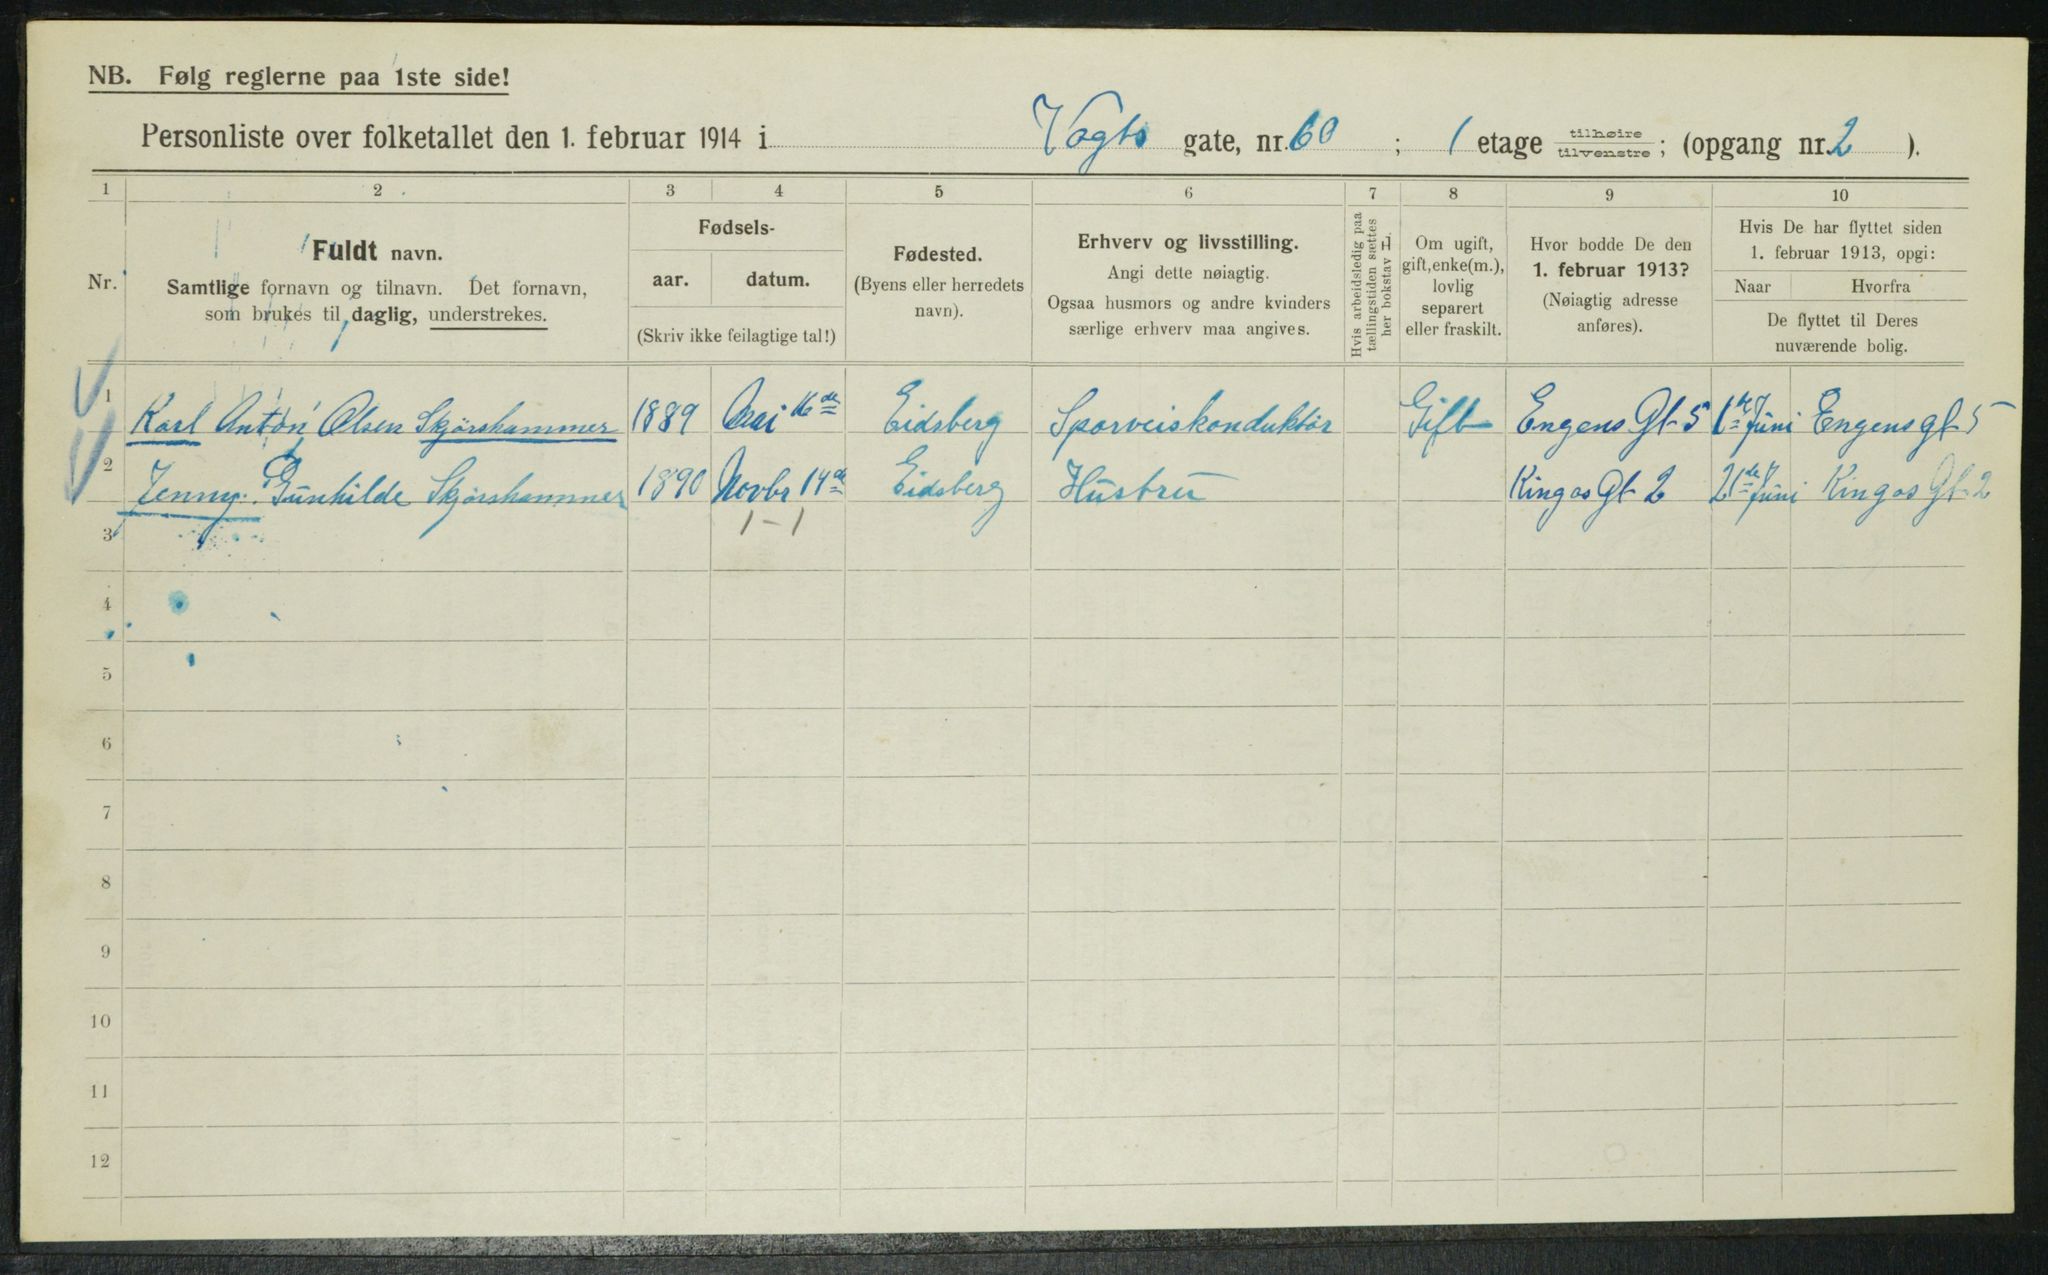 NB. Følg reglerne paa 1ste side!
Personliste over folketallet den 1. februar 1914 i Vogts gate, nr. 60 ; 1 etage tilhøire tilvenstre ; (opgang nr. 2 ).
1 2 3 4 5 6 7 8 9 10
Nr.
Fuldt navn.
Samtlige fornavn og tilnavn. Det fornavn,
som brukes til daglig, understrekes.
Fødsels-
aar. datum.
(Skriv ikke feilagtige tal!)
Fødested.
(Byens eller herredets
navn).
Erhverv og livsstilling.
Angi dette nøiagtig.
Ogsaa husmors og andre kvinders
særlige erhverv maa angives.
Hvis arbeidsledig paa
tællingstiden sættes
her bokstav L.
Om ugift,
gift, enke(m.),
lovlig
separert
eller fraskilt.
Hvor bodde De den
1. februar 1913?
(Nøiagtig adresse
anføres).
Hvis De har flyttet siden
1. februar 1913, opgi:
Naar Hvorfra
De flyttet til Deres
nuværende bolig.
1 Karl Anton Olsen Skjørshammer 1889 Mai 16de Eidsberg Sporveiskonduktør Gift Engens Gt 5 1ste Juni Engens gt 5
2 Jenny Gunhilde Skjørshammer 1890 Novbr 14de Eidsberg Hustru Kingos Gt 2 21de Juni Kingos Gt 2
1-1
3
4
5
6
7
8
9
10
11
12